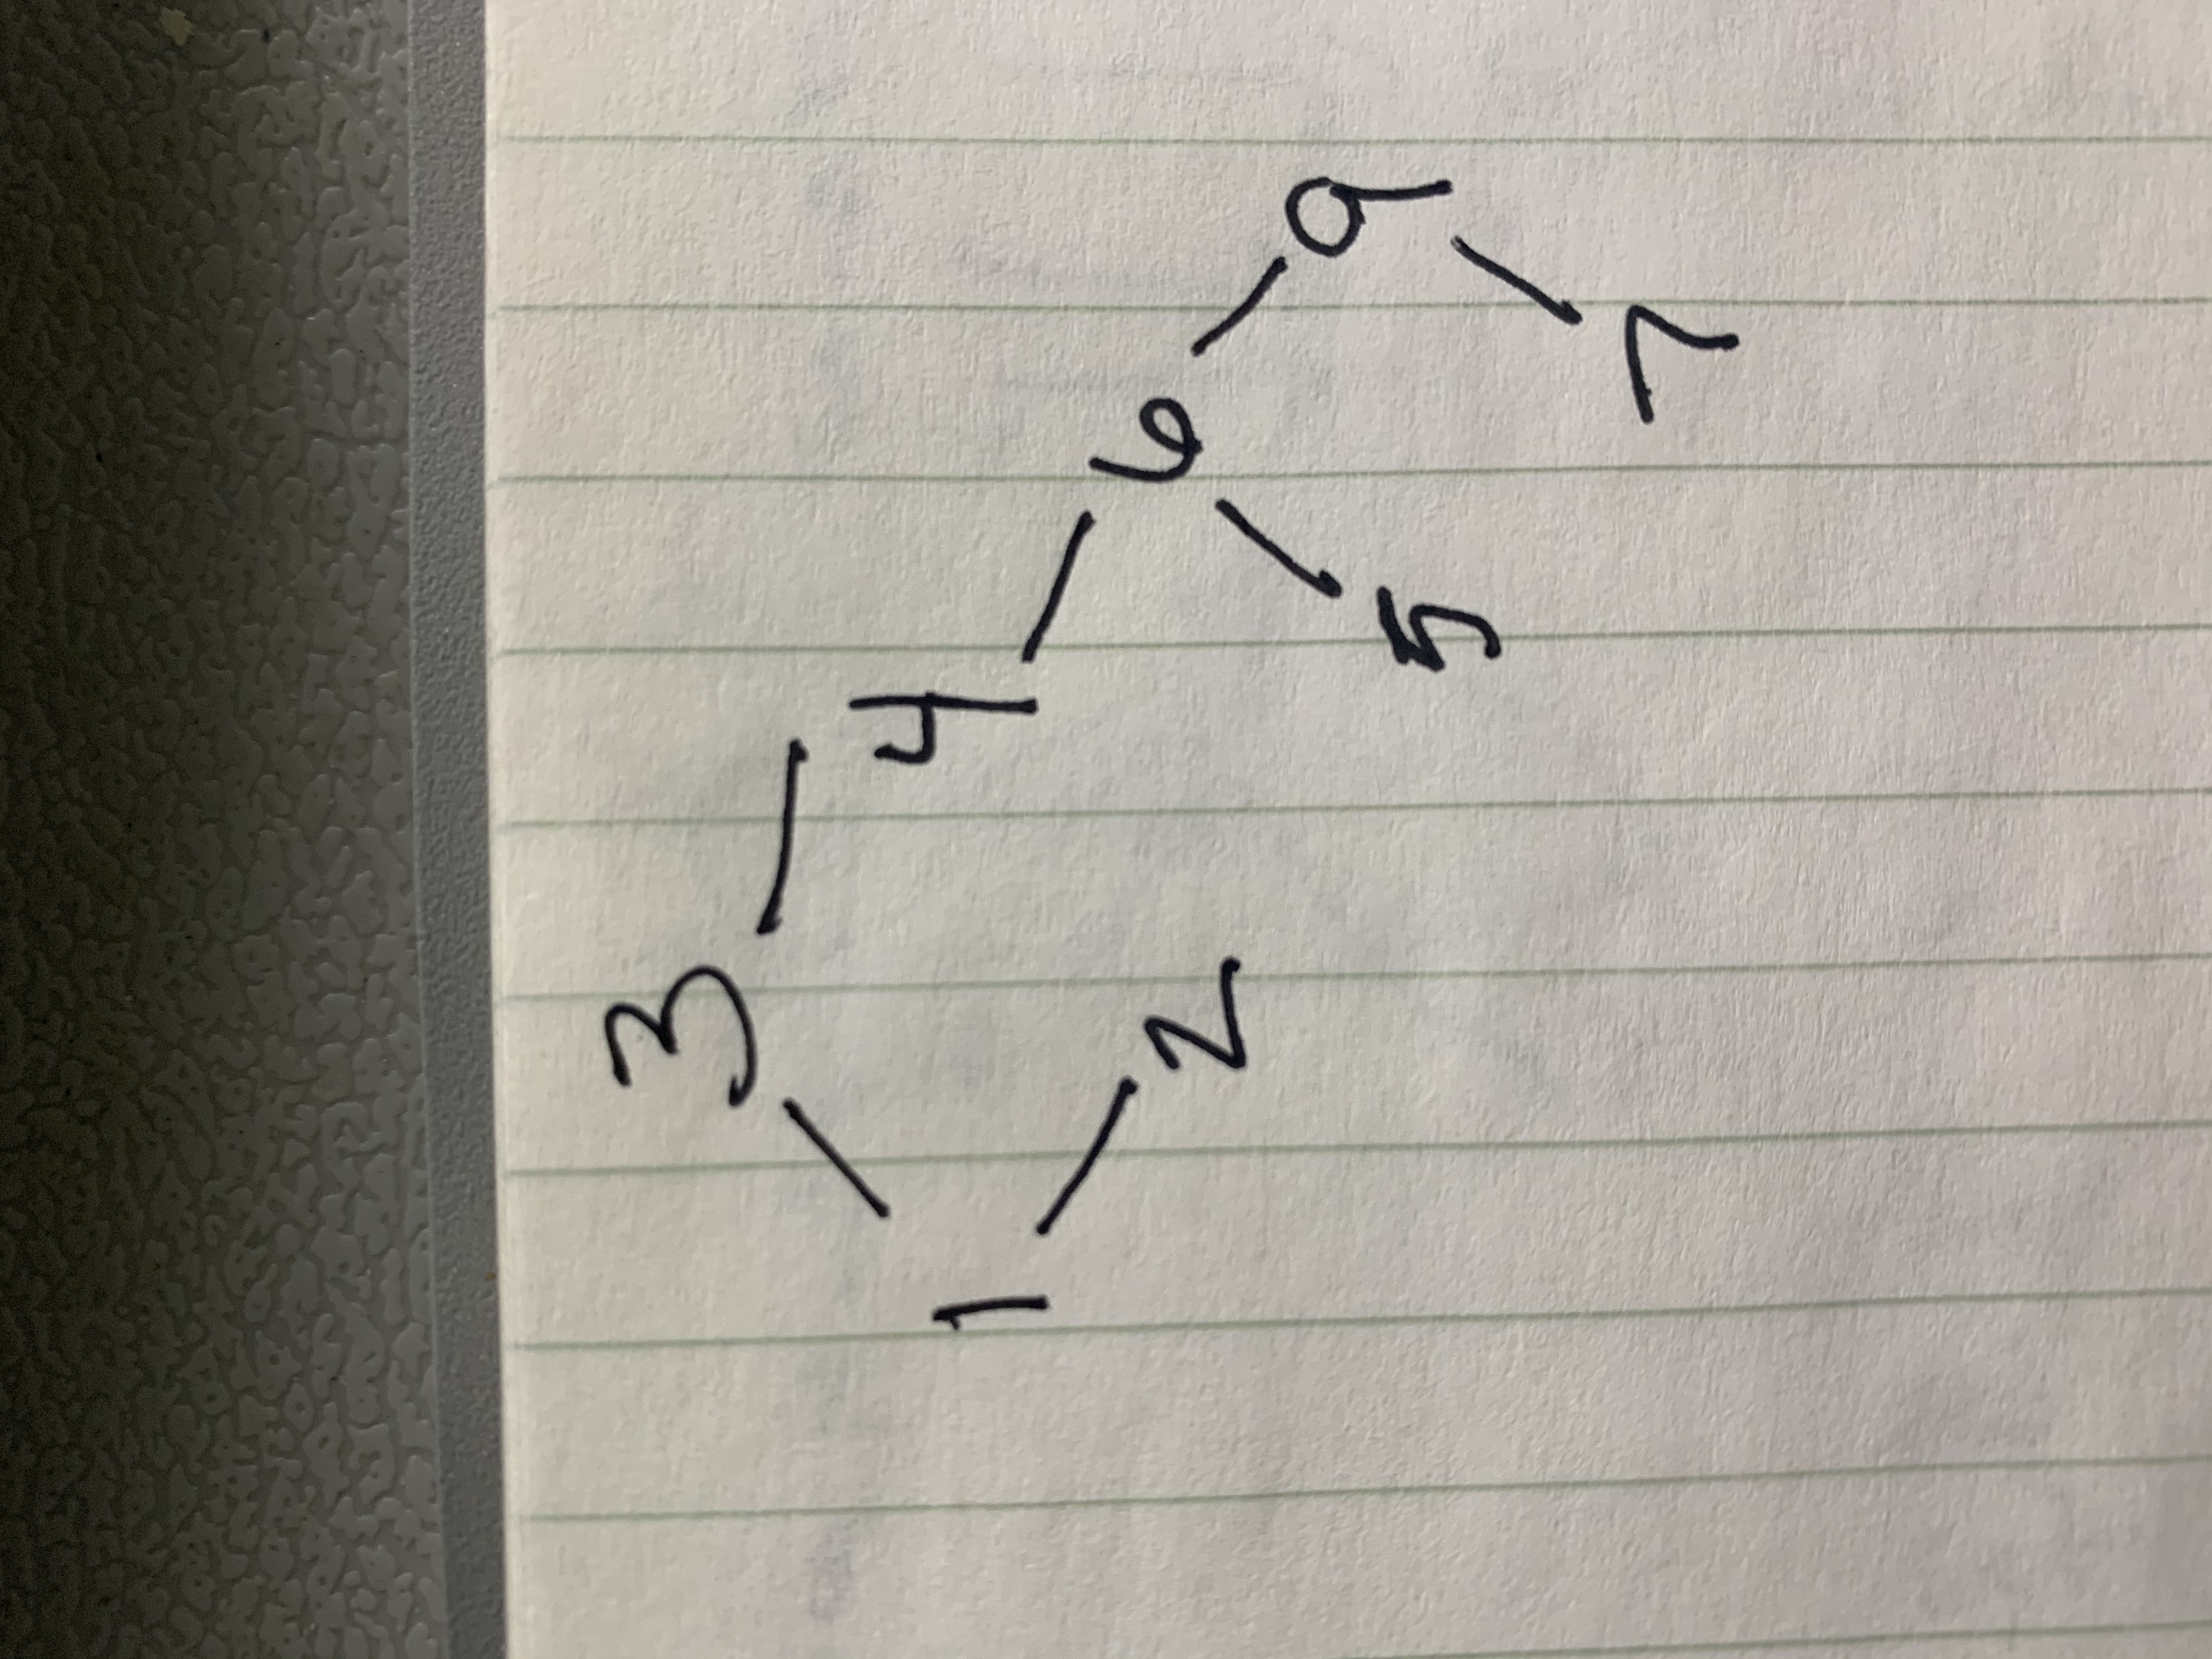 3
1 4
2 6
5 9
7